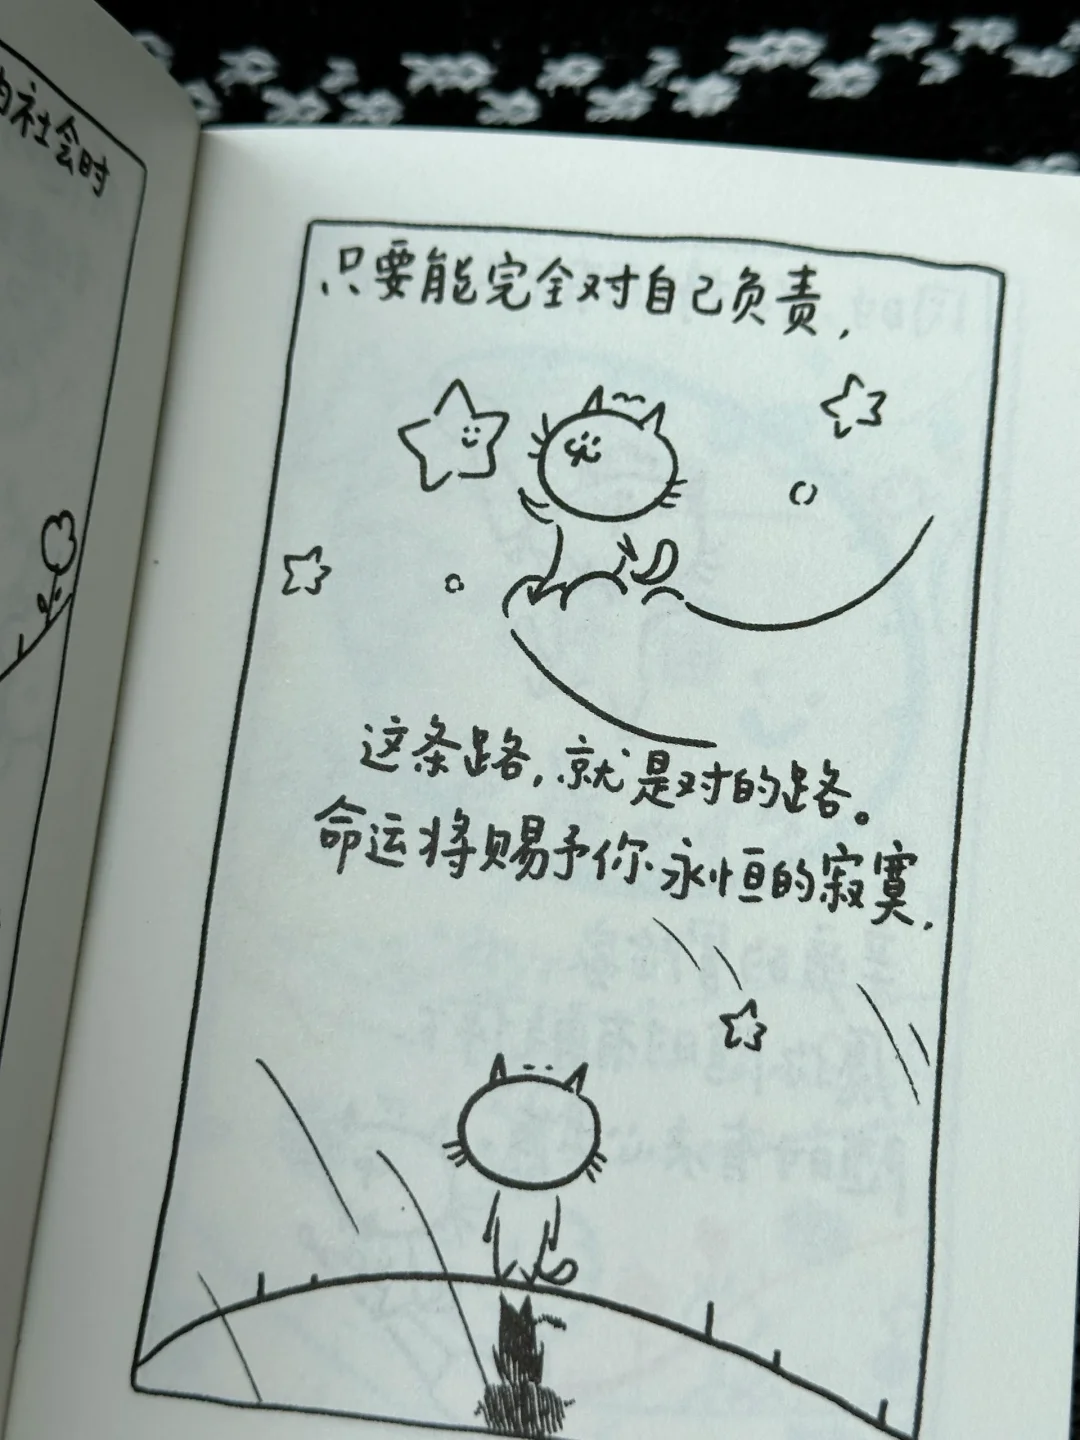 的社会时
只要能完全对自己负责，
这条路，就是对的路。
命运将赐予你永恒的寂寞，